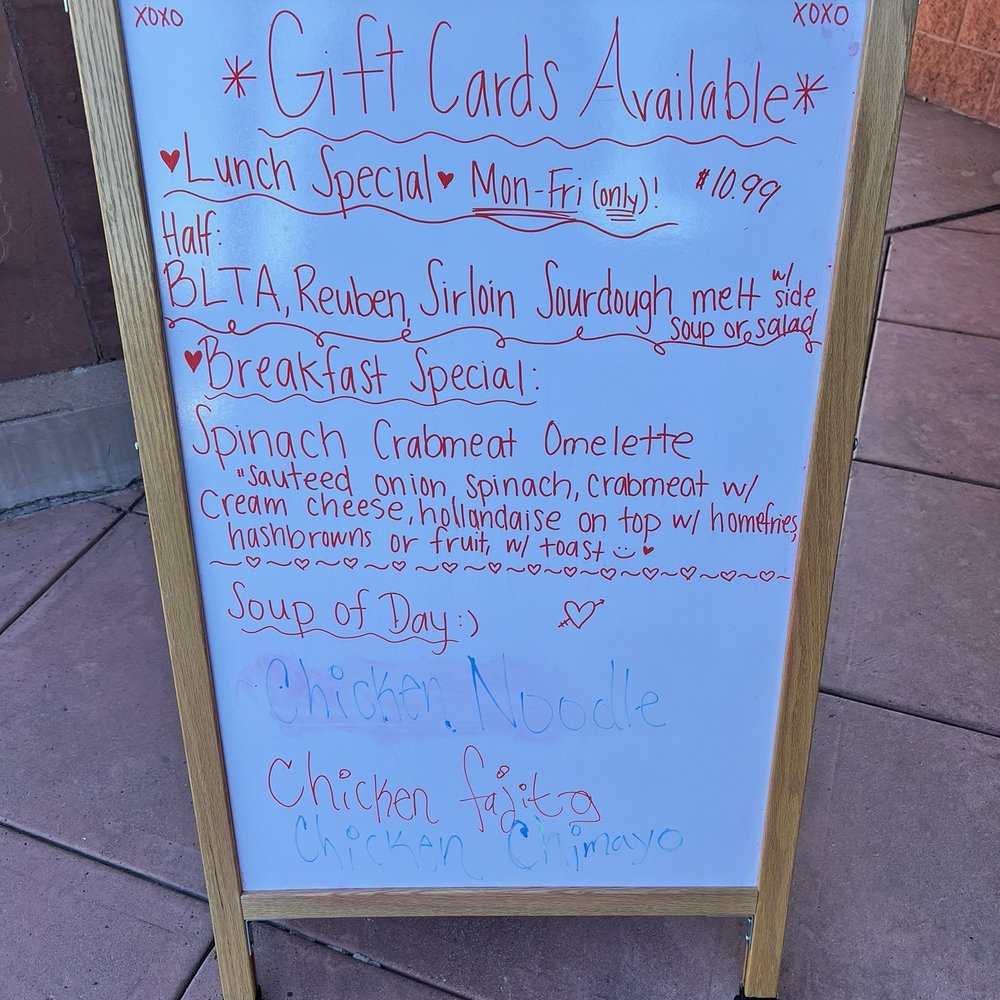 XOXO XOXO
*Gift Cards Available*
♥Lunch Special♥ Mon-Fri (only)! $10.99
Half:
BLTA, Reuben, Sirloin Sourdough melt w/ side
soup or salad
♥Breakfast Special:
Spinach Crabmeat Omelette
"Sauteed onion spinach, crabmeat w/
cream cheese, hollandaise on top w/ homefries,
hashbrowns or fruit, w/ toast ☺ ♥
Soup of Day :)
Chicken Noodle
Chicken fajita
Chicken Chimayo